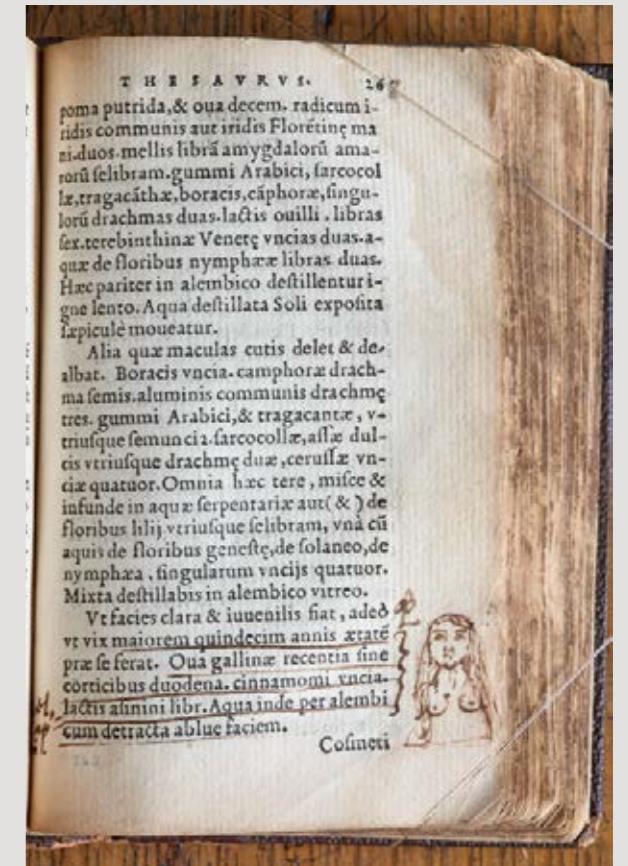 THESAVRVS. 26
poma putrida, & oua decem. radicum i-
ridis communis aut iridis Florētinę ma
ni.duos.mellis librā amygdalorū ama-
rorū ſelibram.gummi Arabici, ſarcocol
læ,tragacāthæ,boracis,cāphoræ,ſingu-
lorū drachmas duas.lactis ouilli . libras
ſex.terebinthinæ Venetę vncias duas.a-
quæ de floribus nymphææ libras duas.
Hæc pariter in alembico deſtillentur i-
gne lento. Aqua deſtillata Soli expoſita
ſæpiculè moueatur.
Alia quæ maculas cutis delet & de-
albat. Boracis vncia.camphoræ drach-
ma ſemis.aluminis communis drachmę
tres. gummi Arabici,& tragacantæ, v-
triuſque ſemuncia.ſarcocollæ,aſſæ dul-
cis vtriuſque drachmę duæ,ceruſſæ vn-
ciæ quatuor.Omnia hæc tere , miſce &
infunde in aquæ ſerpentariæ aut( & ) de
floribus lilij vtriuſque ſelibram, vnà cū
aquis de floribus geneſtę,de ſolaneo,de
nymphæa . ſingularum vncijs quatuor.
Mixta deſtillabis in alembico vitreo.
Vt facies clara & iuuenilis fiat, adeò
vt vix maiorem quindecim annis ætatē
præ ſe ferat. Oua gallinæ recentia ſine
corticibus duodena. cinnamomi vncia.
lactis aſinini libr. Aqua inde per alembi
cum detracta ablue faciem.
Coſmeti